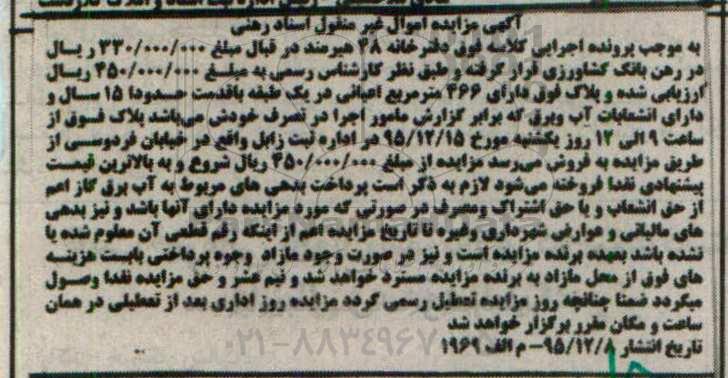 آگهی مزایده اموال غیر منقول اسناد رهنی
به موجب پرونده اجرایی کلاسه فوق دفترخانه ۴۸ هیرمند در قبال مبلغ ۳۳۰/۰۰۰/۰۰۰ ریال
در رهن بانک کشاورزی قرار گرفته و طبق نظر کارشناس رسمی به مبلغ ۴۵۰/۰۰۰/۰۰۰ ریال
ارزیابی شده و پلاک فوق دارای ۴۶۶ مترمربع اعیانی در یک طبقه باقدمت حدودا ۱۵ سال و
دارای انشعابات آب وبرق که برابر گزارش مامور اجرا در تصرف خودش می‌باشد پلاک فوق از
ساعت ۹ الی ۱۲ روز یکشنبه مورخ ۹۵/۱۲/۱۵ در اداره ثبت زابل واقع در خیابان فردوسی از
طریق مزایده به فروش می‌رسد مزایده از مبلغ ۴۵۰/۰۰۰/۰۰۰ ریال شروع و به بالاترین قیمت
پیشنهادی نقدا فروخته می‌شود لازم به ذکر است پرداخت بدهی های مربوط به آب برق گاز اعم
از حق انشعاب و یا حق اشتراک ومصرف در صورتی که مورد مزایده دارای آنها باشد و نیز بدهی
های مالیاتی و عوارض شهرداری وغیره تا تاریخ مزایده اعم از اینکه رقم قطعی آن معلوم شده یا
نشده باشد بعهده برنده مزایده است و نیز در صورت وجود مازاد وجوه پرداختی بابت هزینه
های فوق از محل مازاد به برنده مزایده مسترد خواهد شد و نیم عشر و حق مزایده نقدا وصول
میگردد ضمنا چنانچه روز مزایده تعطیل رسمی گردد مزایده روز اداری بعد از تعطیلی در همان
ساعت و مکان مقرر برگزار خواهد شد
تاریخ انتشار ۹۵/۱۲/۸- م الف ۱۹۶۹
۰۲۱-۸۸۳۴۹۶۷